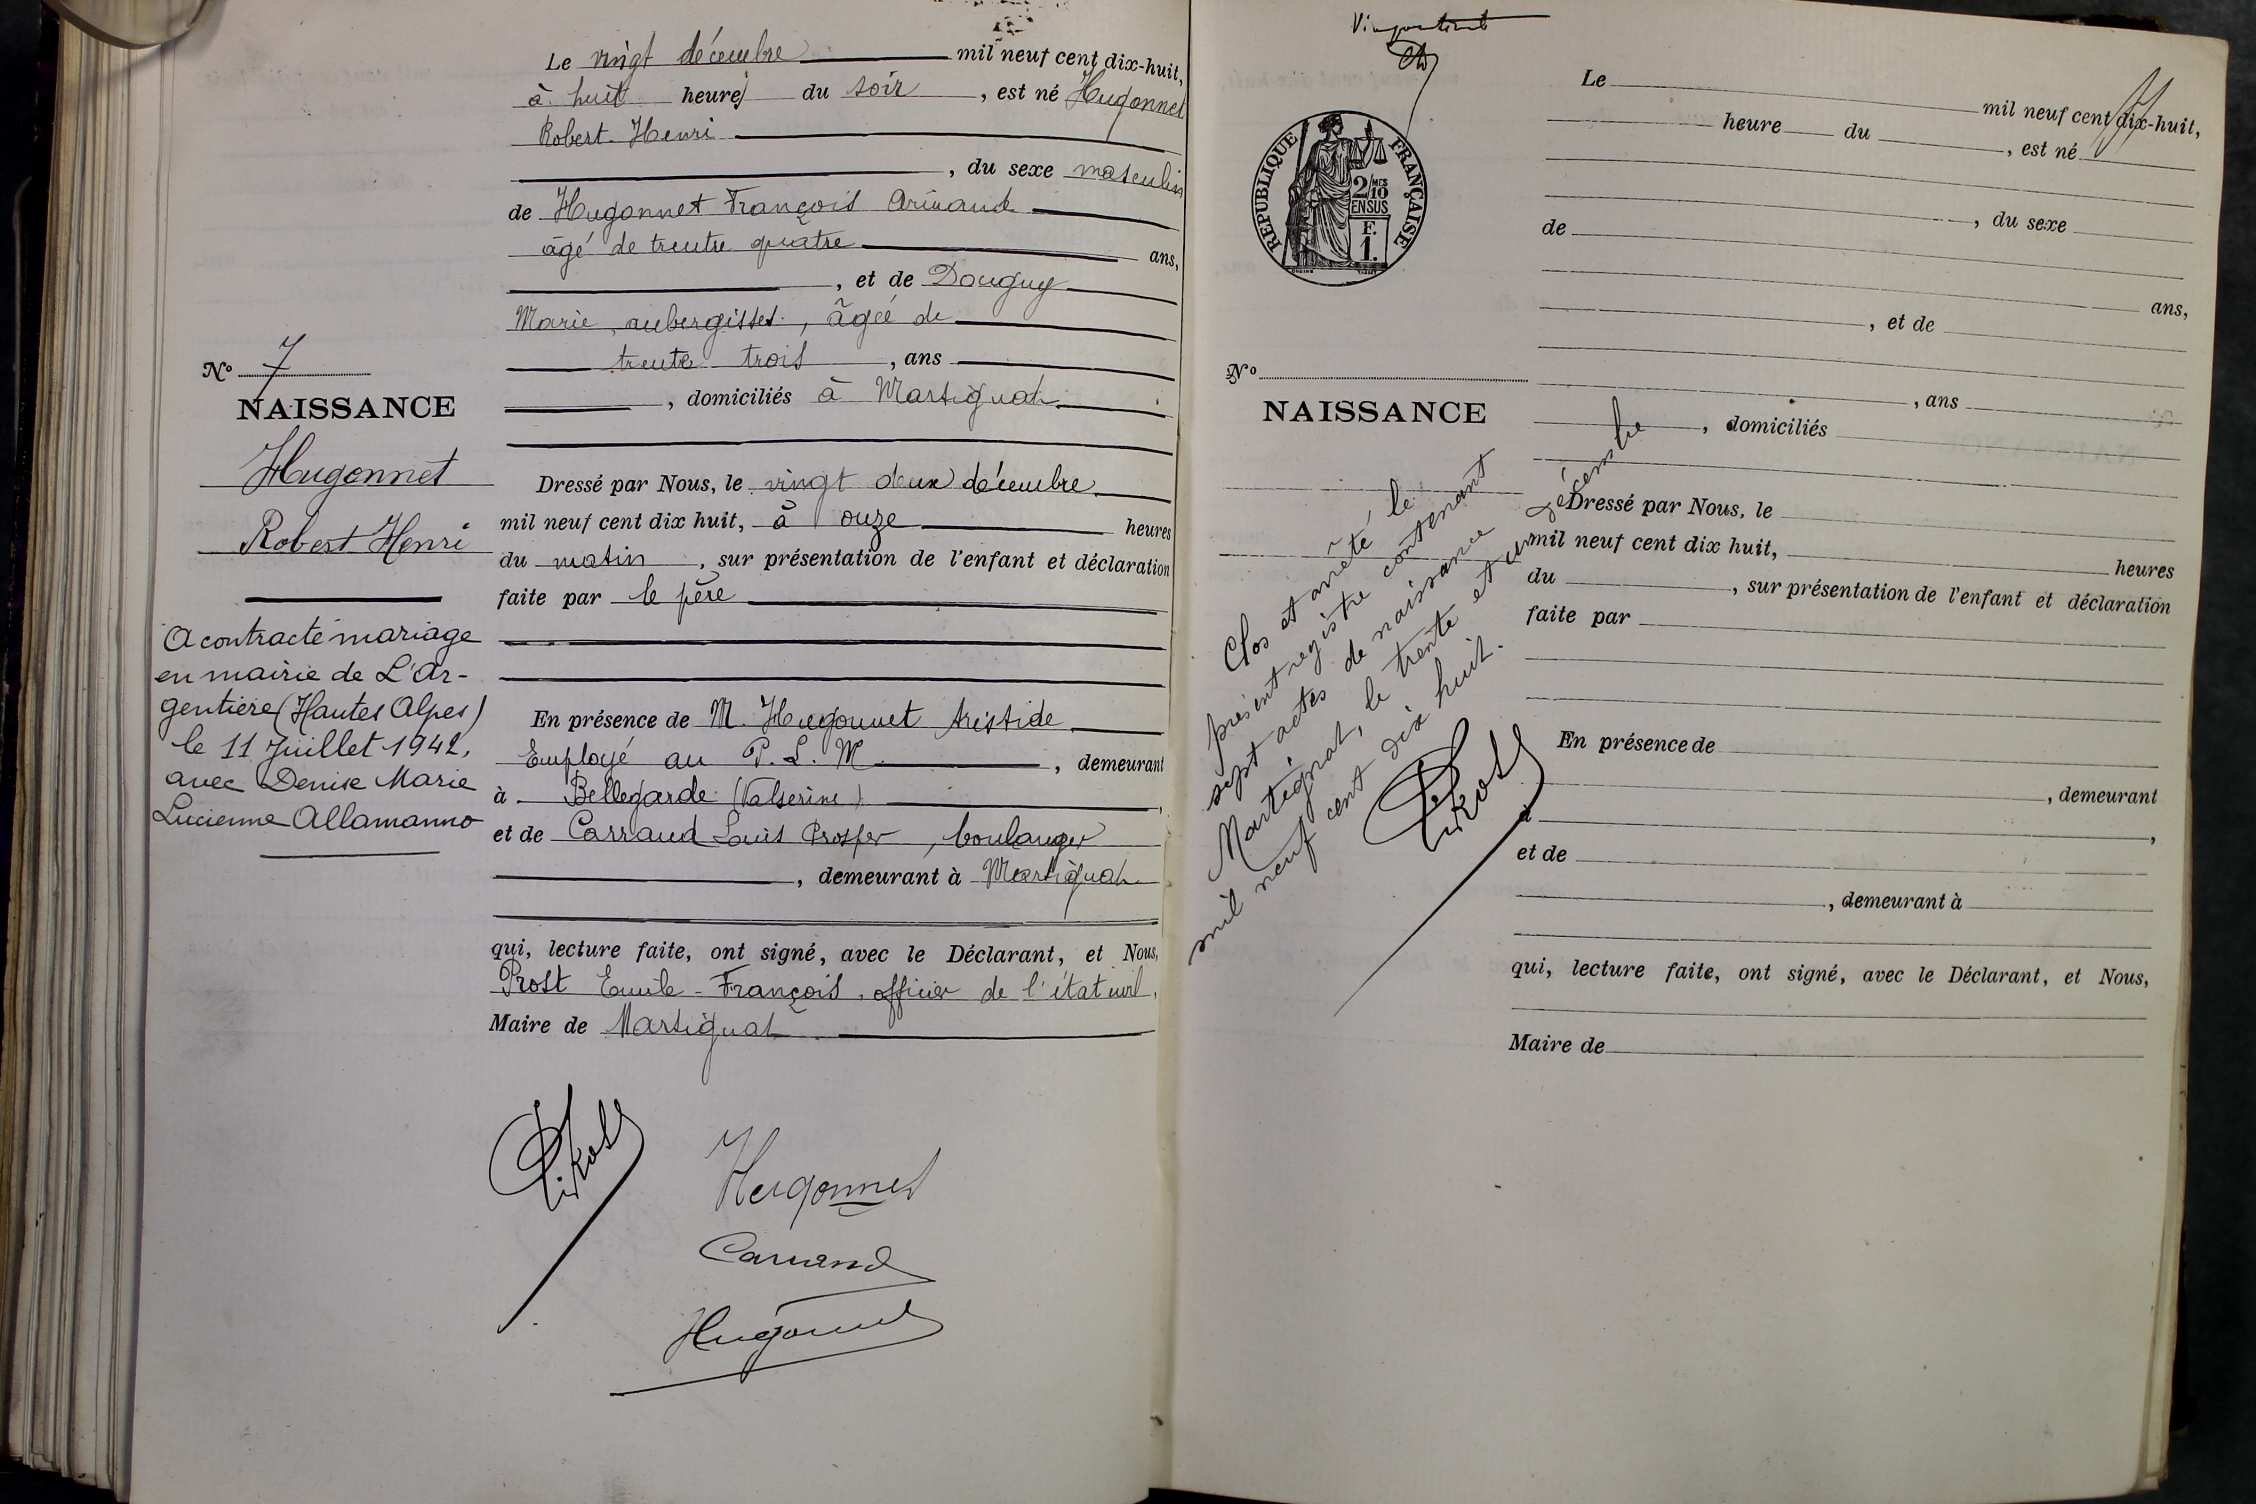 Le vingt décembre mil neuf cent dix-huit,
à huit heures du soir, est né Hugonnet
Robert Henri
, du sexe masculin
de Hugonnet François Armand
âgé de trente quatre ans,
, et de Douguy
Marie, aubergistes, âgée de
trente trois, ans
, domiciliés à Martignat
Dressé par Nous, le vingt deux décembre
mil neuf cent dix huit, à onze heures
du matin, sur présentation de l'enfant et déclaration
faite par le père
En présence de M. Hugonnet Aristide
Employé au P.L.M., demeurant
à Bellegarde (Valserine),
et de Carraud Louis Prosper, boulanger
, demeurant à Martignat
qui, lecture faite, ont signé, avec le Déclarant, et Nous,
Prost Emile-François, officier de l'état civil,
Maire de Martignat
Hugonnet
Carraud
Hugonnet
No 7
NAISSANCE
Hugonnet
Robert Henri
A contracté mariage
en mairie de L'Ar-
gentière (Hautes Alpes)
le 11 Juillet 1942,
avec Denise Marie
Lucienne Allamanno
RÉPUBLIQUE FRANÇAISE
2/10 MES
EN SUS
F.
1.
No
NAISSANCE
Clos et arrêté le
présent registre contenant
sept actes de naissance
Martignat, le trente et un décembre
mil neuf cent dix huit.
Le mil neuf cent dix-huit,
heure du, est né
, du sexe
de
ans,
, et de
, ans
, domiciliés
Dressé par Nous, le
mil neuf cent dix huit, heures
du, sur présentation de l'enfant et déclaration
faite par
En présence de
, demeurant
à,
et de
, demeurant à
qui, lecture faite, ont signé, avec le Déclarant, et Nous,
Maire de